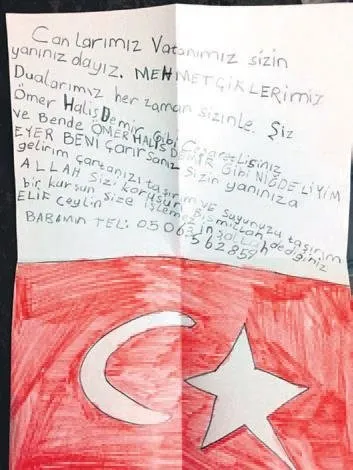 Canlarımız Vatanımız sizin
yanınızdayız. MEHMETÇİKLERİMİZ
Dualarımız her zaman sizinle. Şiz
Ömer Halis Demir Gibi Cigaretlisiniz
ve Bende ÖMER HALİS DEMİR Gibi NİĞDELİYİM
EYER BENİ ÇARIRSANIZ Sizin yanınıza
gelirim çantanızı taşırım ve suyunuzu taşırım
ALLAH Sizi korusun Bismillah dediğiniz
bir kurşun size işlemez inşallah
ELİF Ceylin
BABAMIN TEL: 05063
562859